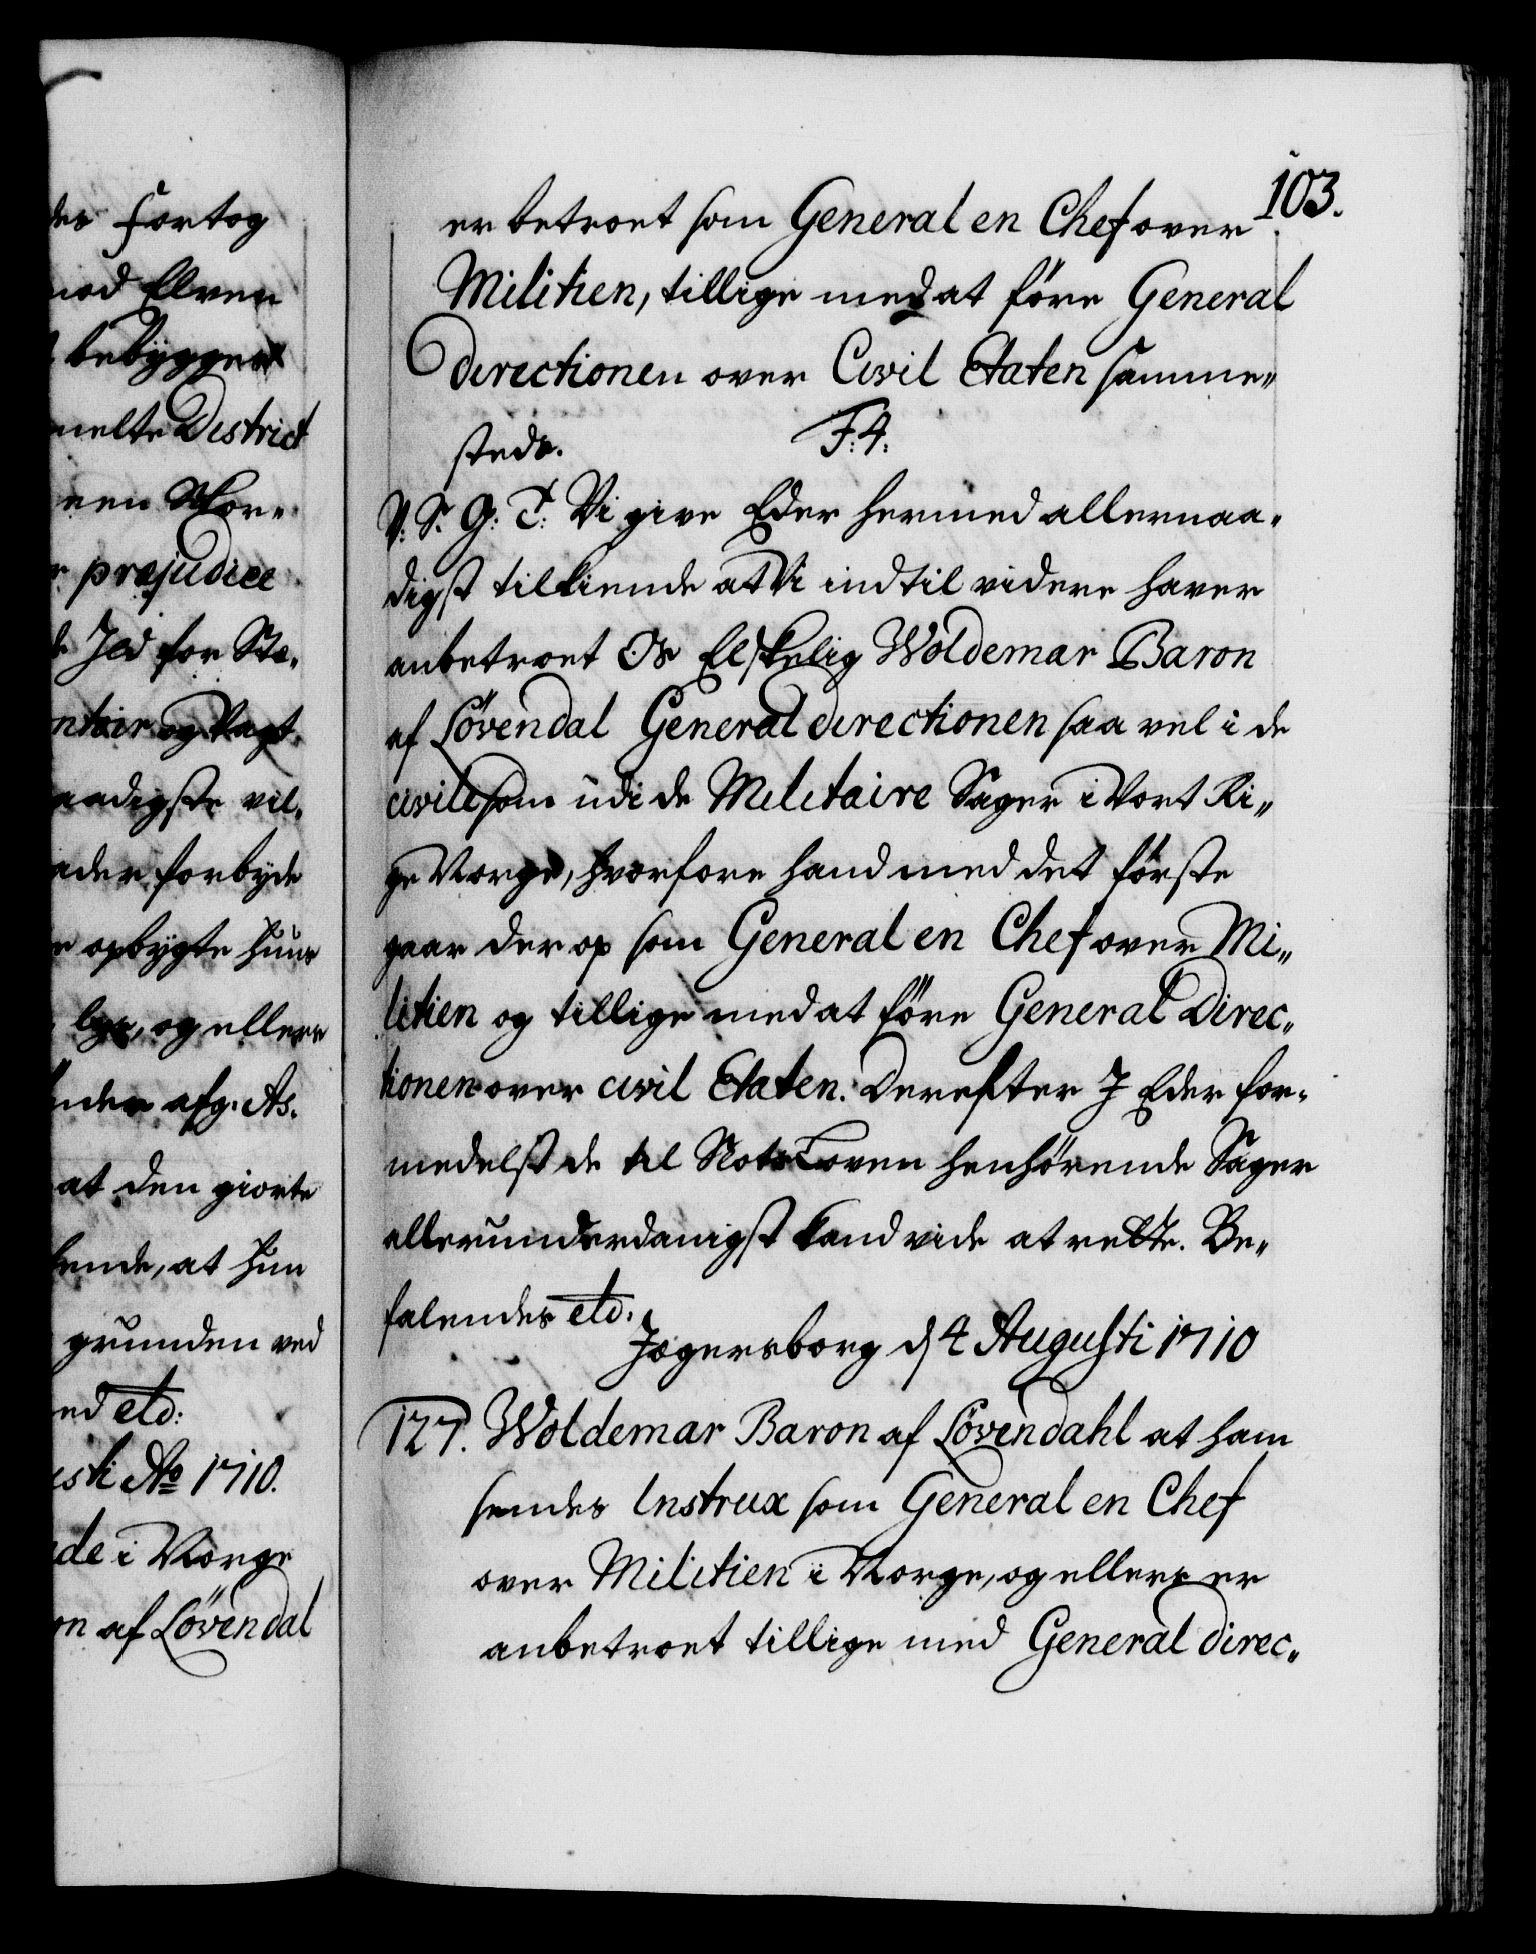 des fortog
mod Elven
bebygger
melte District
nen Skor-
præjudice
Ild for Stæ-
ntoir og Vagt
aadigste vil-
eder forbyde
opbygte Huus
bye, og ellers
nder afg. As.
at den giorte
kende, at Hun
grunden ved
ed etc:
usti Ao 1710.
de i Norge
on af Løvendal
103.
er betroet som General en Chef over
Militien, tillige med at före General
Directionen over Civil Etaten samme-
steds. F: 4:
V. S. G: T: Vi give Eder hermed allernaa-
digst tilkiende at Vi indtil videre haver
anbetroet Os Elskelig Woldemar Baron
af Lövendal General directionen saa vel i de
civile som udi de Militaire Sager i Vort Ri-
ge Norge, hvorfore hand med det förste
gaar der op som General en Chef over Mi-
litien og tillige med at före General Direc-
tionen over civil Etaten. Derefter I Eder for-
medelst de til Slots Loven henhörende Sager
allerunderdanigst kand vide at rette. Be-
falendes etc:
Jægersborg d 4 Augusti 1710
127. Woldemar Baron af Lövendahl at ham
sendes Instrux som General en Chef
over Militien i Norge, og ellers er
anbetroet tillige med General Direc-